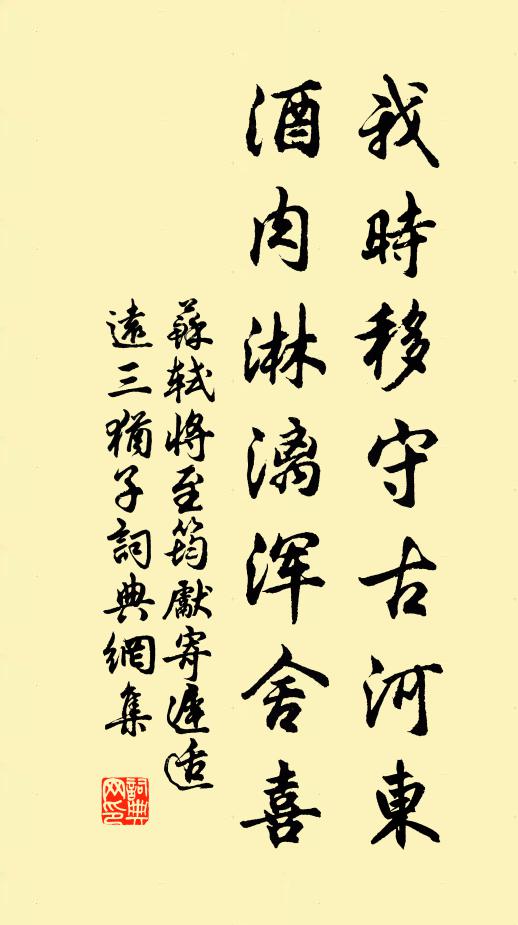 我時移守古河東
酒肉淋漓浑舍喜
蘇軾將至筠獻寄遲适
遠三猶子詞典網集
詞典网印